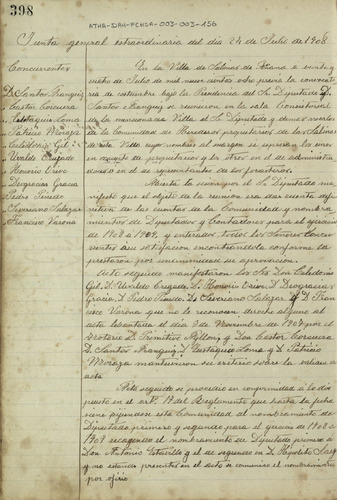 398
ATHA-DAH-FCHSA-003-003-156
Junta general extraordinaria del dia 24 de Julio de 1908
Concurrentes
D. Santos Frangüiz
Castor Corcuera
Eustaquio Loma
Patricio Moraza
Celedonio Gil
Uvaldo Ortgado
Honorio Orive
Deogracias Gracia
Pedro Pinedo
Severiano Salazar
Francisco Varona
En la Villa de Salinas de Añana a veinte y
cuatro de Julio de mil nuevecientos ocho previa la convocatoria
de costumbre bajo la Presidencia del Sr Diputado D.
Santos Frangüiz se reunieron en la sala Consistorial
de la mencionada Villa el Sr Diputado y demas vocales
de la Comunidad de Herederos propietarios de las Salinas
de esta Villa cuyos nombres al margen se expresan los unos
en concepto de propietarios y los otros en el de administradores
o en el de representantes de los forasteros.
Abierta la sesion por el Sr Diputado manifestó
que el objeto de la reunion era dar cuenta definitiva
de las cuentas de la Comunidad y nombramientos
de Diputados y Contadores para el ejercicio
de 1908 a 1909, y enterados todos los Señores Concurrentes
a su satisfaccion encontrandola conforme la
prestaron por unanimidad su aprovacion.
Acto seguido manifestaron los Srs Don Celedonio
Gil, D. Uvaldo Ortgado, D. Honorio Orive, D. Deogracias
Gracia, D. Pedro Pinedo, D. Severiano Salazar y D. Francisco
Varona que no le reconocen derecho alguno al
acta levantada el dia 9 de Noviembre de 1907 por el
Notario D. Primitivo Ayllon, y Don Castor Corcuera
D. Santos Frangüiz, D. Eustaquio Loma y D. Patricio
Moraza mantuvieron su criterio sobre la validez del
acta
Acto seguido se procedió en conformidad a lo dispuesto
en el artº 19 del Reglamento que hasta la fecha
viene rijiendose esta Comunidad al nombramiento de
Diputado primero y segundo para el ejercicio de 1908 a
1909 recayendo el nombramiento de Diputado primero a
Don Antonio Estavillo y el de segundo en D. Hipolito Saez
y no estando presentes en el acto se comunicó el nombramiento
por oficio